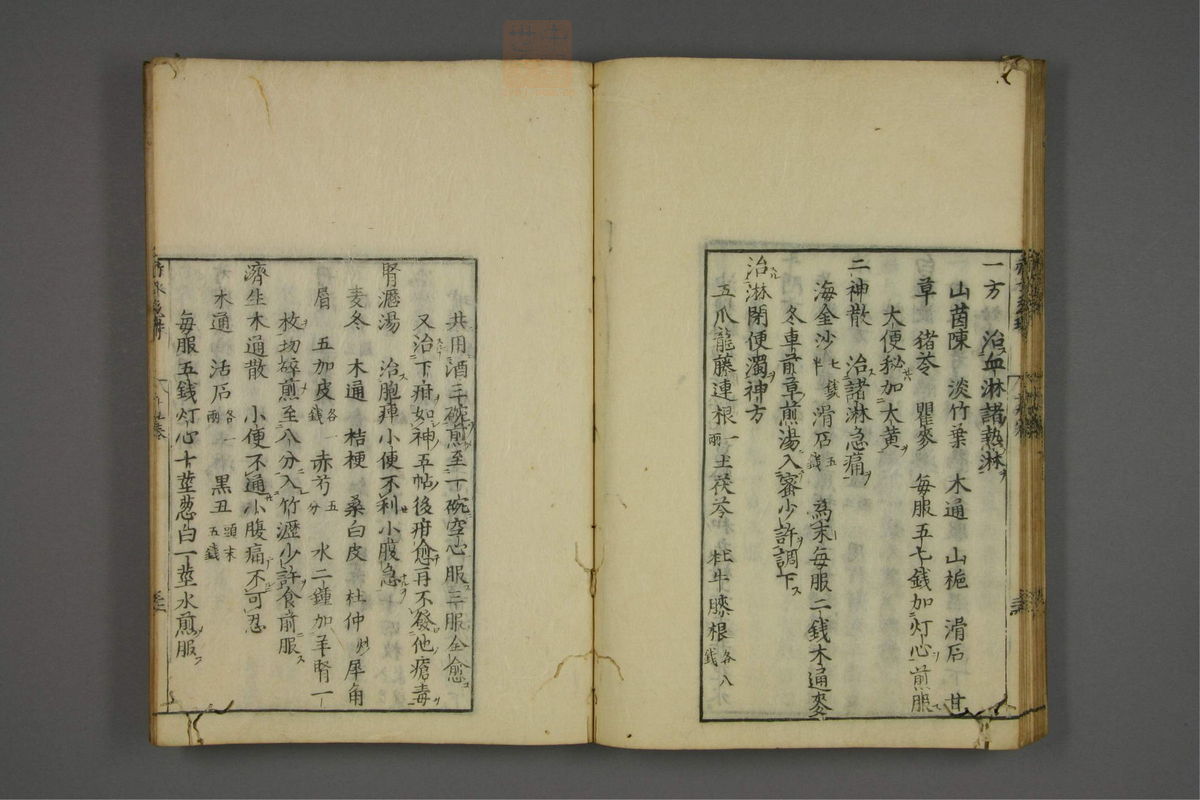 一方　治血淋諸熱淋
山茵陳　淡竹葉　木通　山梔　滑石　甘
草　猪苓　瞿麥　毎服五七錢加灯心煎服
大便秘加大黄
二神散　治諸淋急痛
海金沙七錢半　滑石五錢　爲末毎服二錢木通麥
冬車前草煎湯入蜜少許調下
治淋閉便濁神方
五爪龍藤連根一兩　土茯苓　杜牛膝根各八錢
共用酒三碗煎至一碗空心服三服全愈
又治下疳如神五帖後疳愈再不發他瘡毒
腎瀝湯　治胞痺小便不利小腹急
麦冬　木通　桔梗　桑白皮　杜仲炒　犀角
屑　五加皮各一錢　赤芍五分　水二鍾加羊腎一
枚切碎煎至八分入竹瀝少許食前服
濟生木通散　小便不通小腹痛不可忍
木通　活石各一兩　黒丑頭末五錢
毎服五錢灯心十莖葱白一莖水煎服